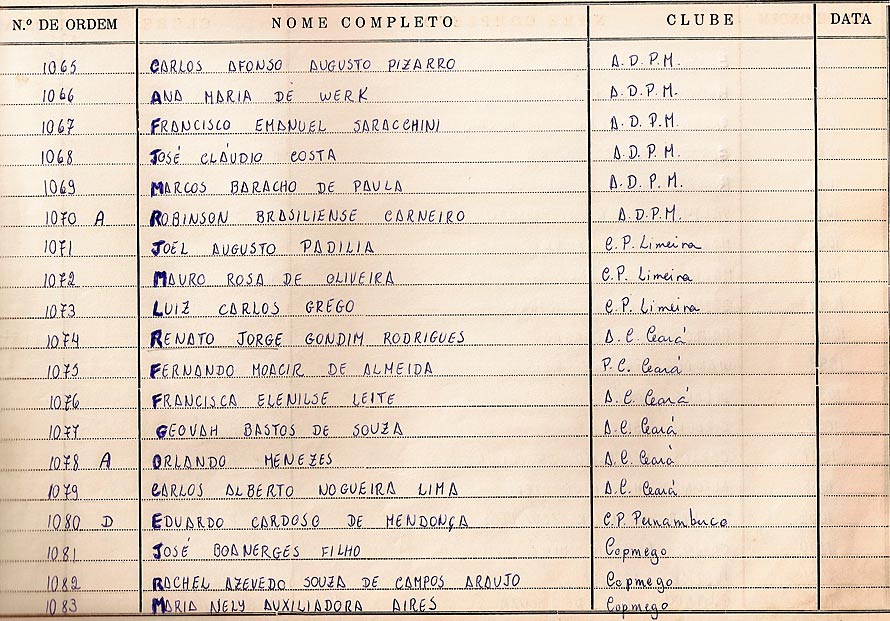 N.º DE ORDEM NOME COMPLETO CLUBE DATA
1065 CARLOS AFONSO AUGUSTO PIZARRO A.D.P.M.
1066 ANA MARIA DE WERK A.D.P.M.
1067 FRANCISCO EMANUEL SARACCHINI A.D.P.M.
1068 JOSÉ CLÁUDIO COSTA A.D.P.M.
1069 MARCOS BARACHO DE PAULA A.D.P.M.
1070 A ROBINSON BRASILIENSE CARNEIRO A.D.P.M.
1071 JOEL AUGUSTO PADILIA C.P. Limeira
1072 MAURO ROSA DE OLIVEIRA C.P. Limeira
1073 LUIZ CARLOS GREGO C.P. Limeira
1074 RENATO JORGE GONDIM RODRIGUES A.C. Ceará
1075 FERNANDO MOACIR DE ALMEIDA P.C. Ceará
1076 FRANCISCA ELENILSE LEITE A.C. Ceará
1077 GEOVAH BASTOS DE SOUZA A.C. Ceará
1078 A ORLANDO MENEZES A.C. Ceará
1079 CARLOS ALBERTO NOGUEIRA LIMA A.C. Ceará
1080 D EDUARDO CARDOSO DE MENDONÇA C.P. Pernambuco
1081 JOSÉ BOANERGES FILHO Copmego
1082 RACHEL AZEVEDO SOUZA DE CAMPOS ARAUJO Copmego
1083 MARIA NELY AUXILIADORA AIRES Copmego